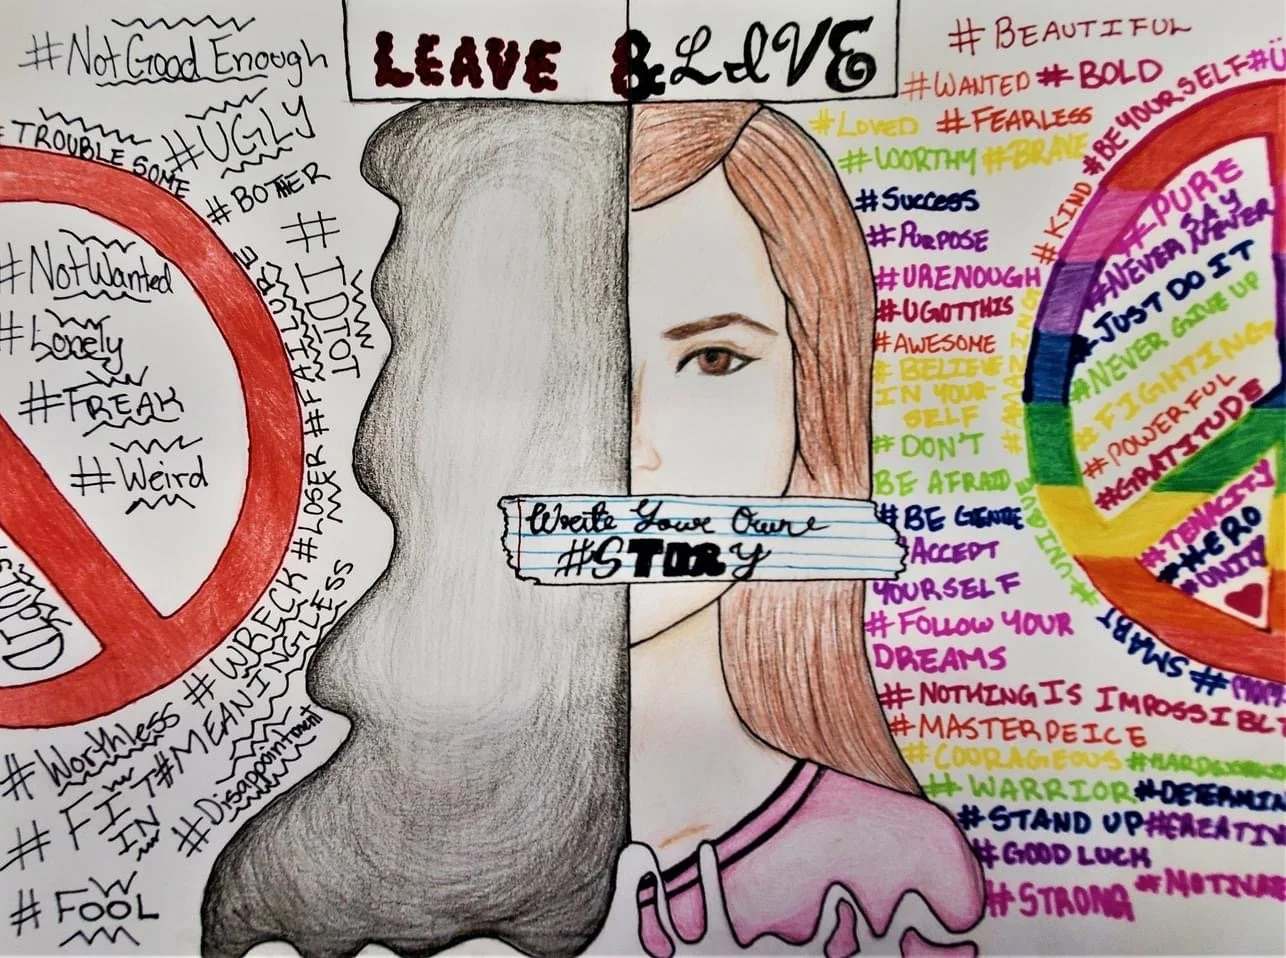 LEAVE & LIVE
#NotGood Enough
#TROUBLE SOME
#UGLY
#BOTHER
#IDIOT
#NotWanted
#Lonely
#FREAK
#Weird
#LOSER #FAILURE
STUPID
#WRECK
#Worthless
#MEANINGLESS
#FIT
IN
#Disappointment
#FOOL
Write Your Own
#STORY
#BEAUTIFUL
#WANTED #BOLD
#LOVED #FEARLESS
#WORTHY #BRAVE
#SUCCESS
#PURPOSE
#URENOUGH
#UGOTTHIS
#AWESOME
#BELIEVE
IN YOUR
SELF
#AMAZING
#DON'T
BE AFRAID
#BE GENTLE
#ACCEPT
YOURSELF
#FOLLOW YOUR
DREAMS
#NOTHING IS IMPOSSIBLE
#MASTERPEICE
#COURAGEOUS
#WARRIOR #DETERMIN
#STAND UP #CREATIV
#GOOD LUCK
#STRONG #MOTIVA
#KIND #BE YOURSELF
#PURE
#NEVER SAY
NEVER
#JUST DO IT
#NEVER GIVE UP
#FIGHTING
#POWERFUL
#GRATITUDE
#TENACITY
#HERO
#UNITY
#UNIQUE
#SMART